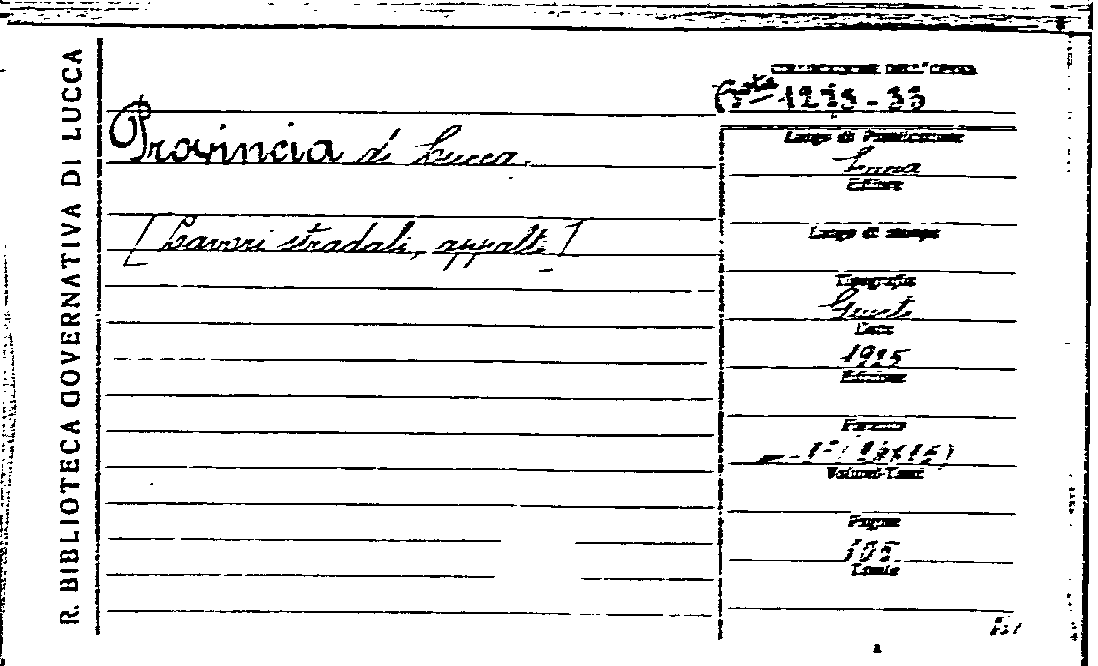 R. BIBLIOTECA GOVERNATIVA DI LUCCA
Provincia di Lucca
[Lavori stradali, appalti]
Busta 1213-33
Luogo di Pubblicazione
Lucca
Editore
Luogo di stampa
Tipografia
Giusti
Data
1925
Edizione
Formato
Volumi-Tomi
Pagine
105